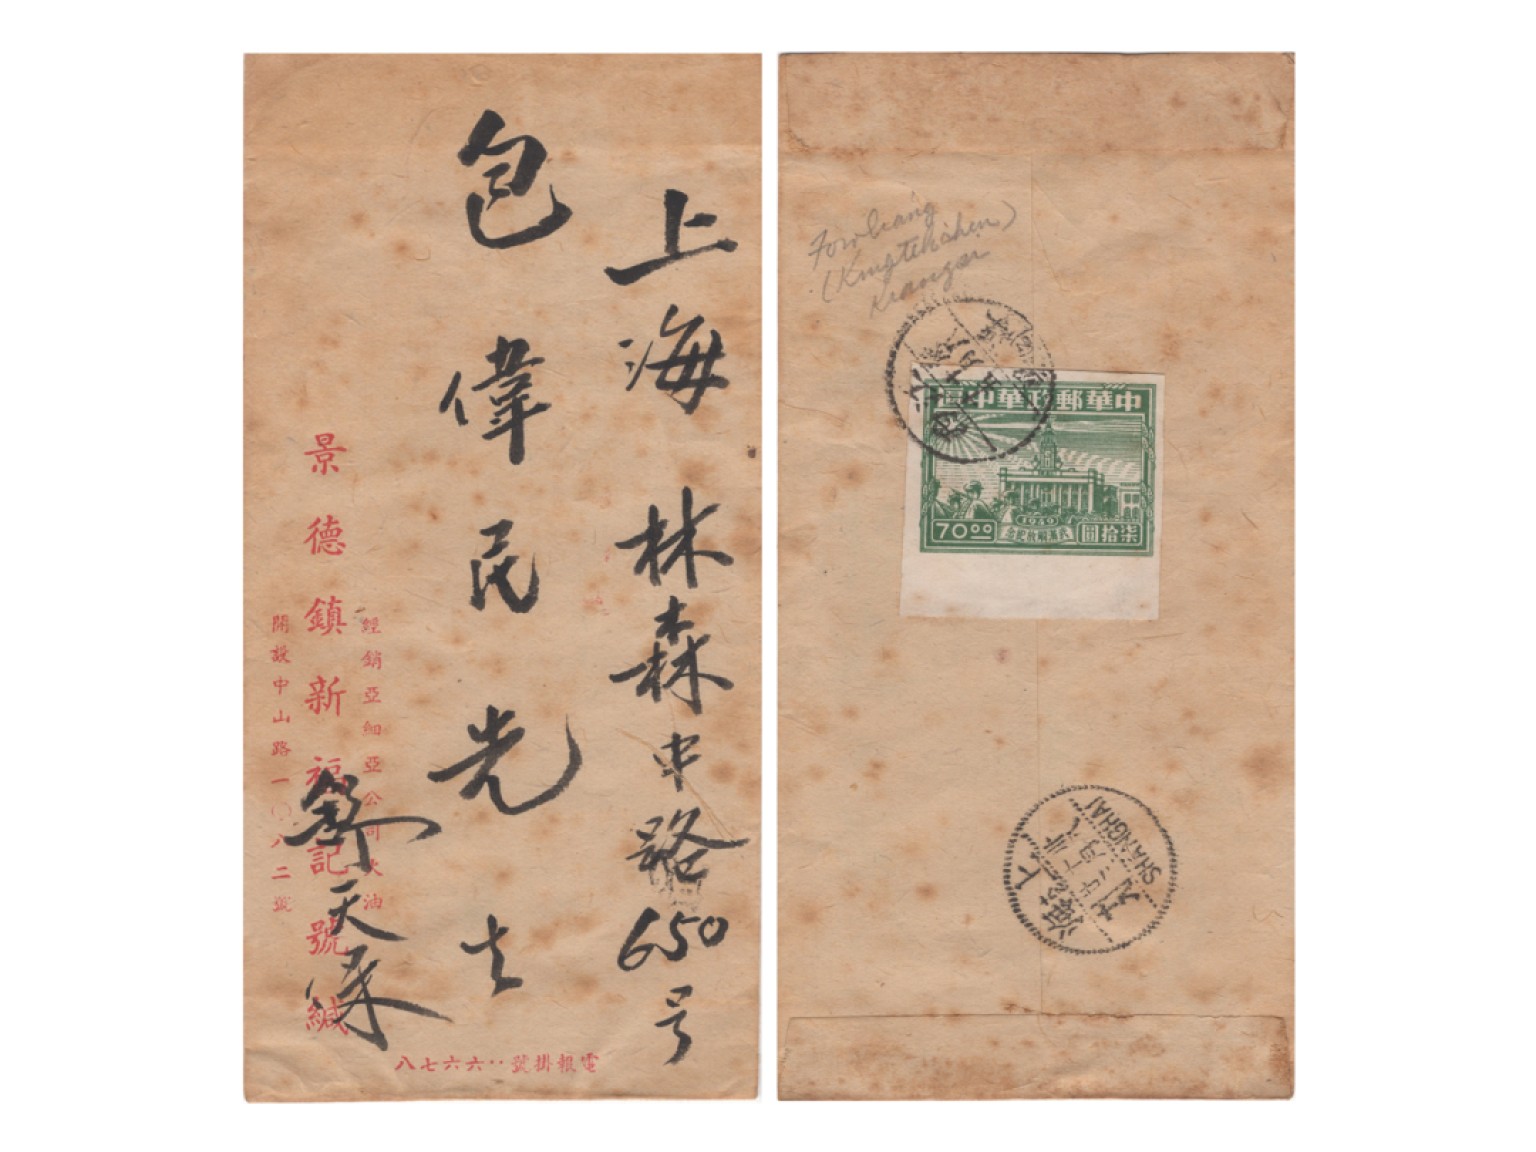 上海林森中路650号
包偉民先生
經銷亞細亞公司火油
景德鎮新福記號緘
開設中山路一〇八二號
鄭天
電報掛號：六六七八
Fowliang
(Kingtehchen)
Kiangsi
中華郵政華中區
70.00
1949
武漢解放紀念
柒拾圓
上海
SHANGHAI